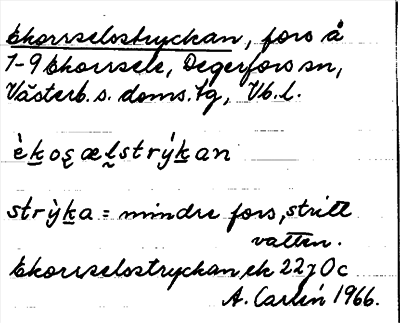 Ekorrselsstryckan, fors å
1-9 Ekorrsele, Degerfors sn,
Västerb. s. doms. tg, Vb. l.
èko̱ʂ æl̥strýkan
strỳka = mindre fors, stritt
vatten.
Ekorrselsstryckan, ek 22 J 0c
A. Carlén 1966.